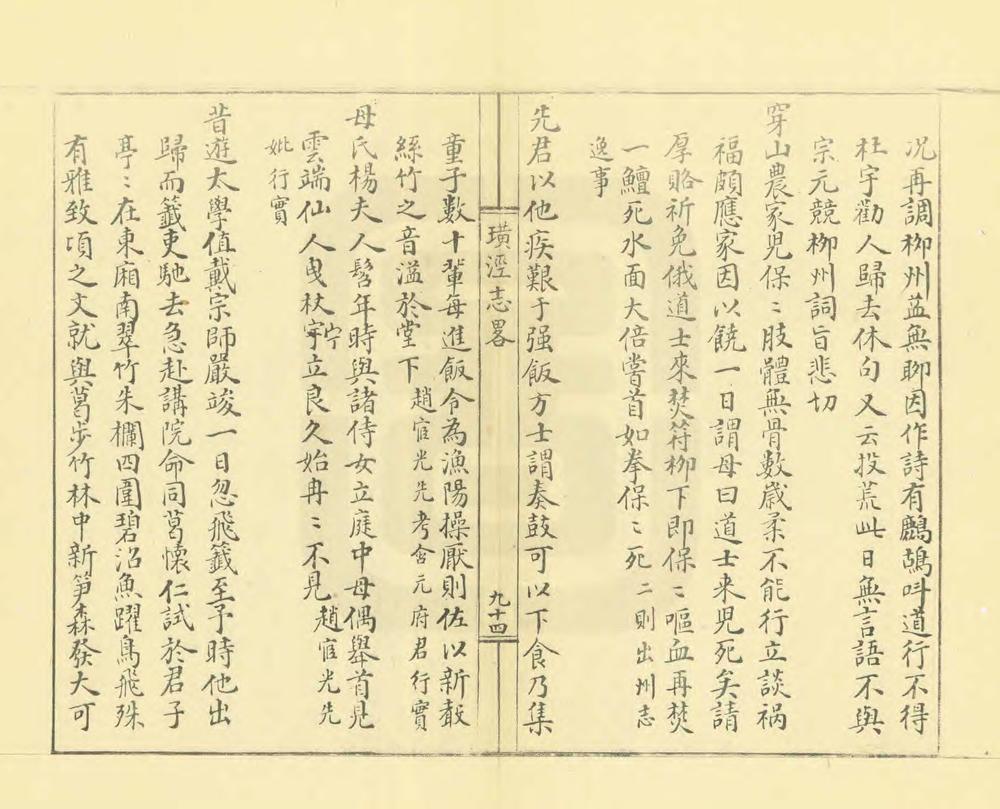 况再調柳州益無聊因作詩有鷓鴣呌道行不得
杜宇勸人歸去休句又云投荒此日無言語不與
宗元競柳州詞旨悲切
穿山農家兒保〻肢體無骨數歲柔不能行立談禍
福頗應家因以饒一日謂母曰道士来兒死矣請
厚賂祈免俄道士來焚符柳下即保〻嘔血再焚
一鱣死水面大倍嘗首如拳保〻死二則出州志
逸事
先君以他疾艱于强飯方士謂奏鼓可以下食乃集
璜涇志畧
九十四
童子數十輩每進飯令為漁陽操厭則佐以新聲
絲竹之音溢於堂下趙宧光先考含元府君行實
母氏楊夫人髫年時與諸侍女立庭中母偶舉首見
雲端仙人曳杖宇宁立良久始冉〻不見趙宧光先
妣行實
昔遊太學值戴宗師嚴竣一日忽飛籤至予時他出
歸而籤吏馳去急赴講院命同葛懷仁試於君子
亭〻在東廂南翠竹朱欄四圍碧沼魚躍鳥飛殊
有雅致頃之文就與葛步竹林中新笋森發大可